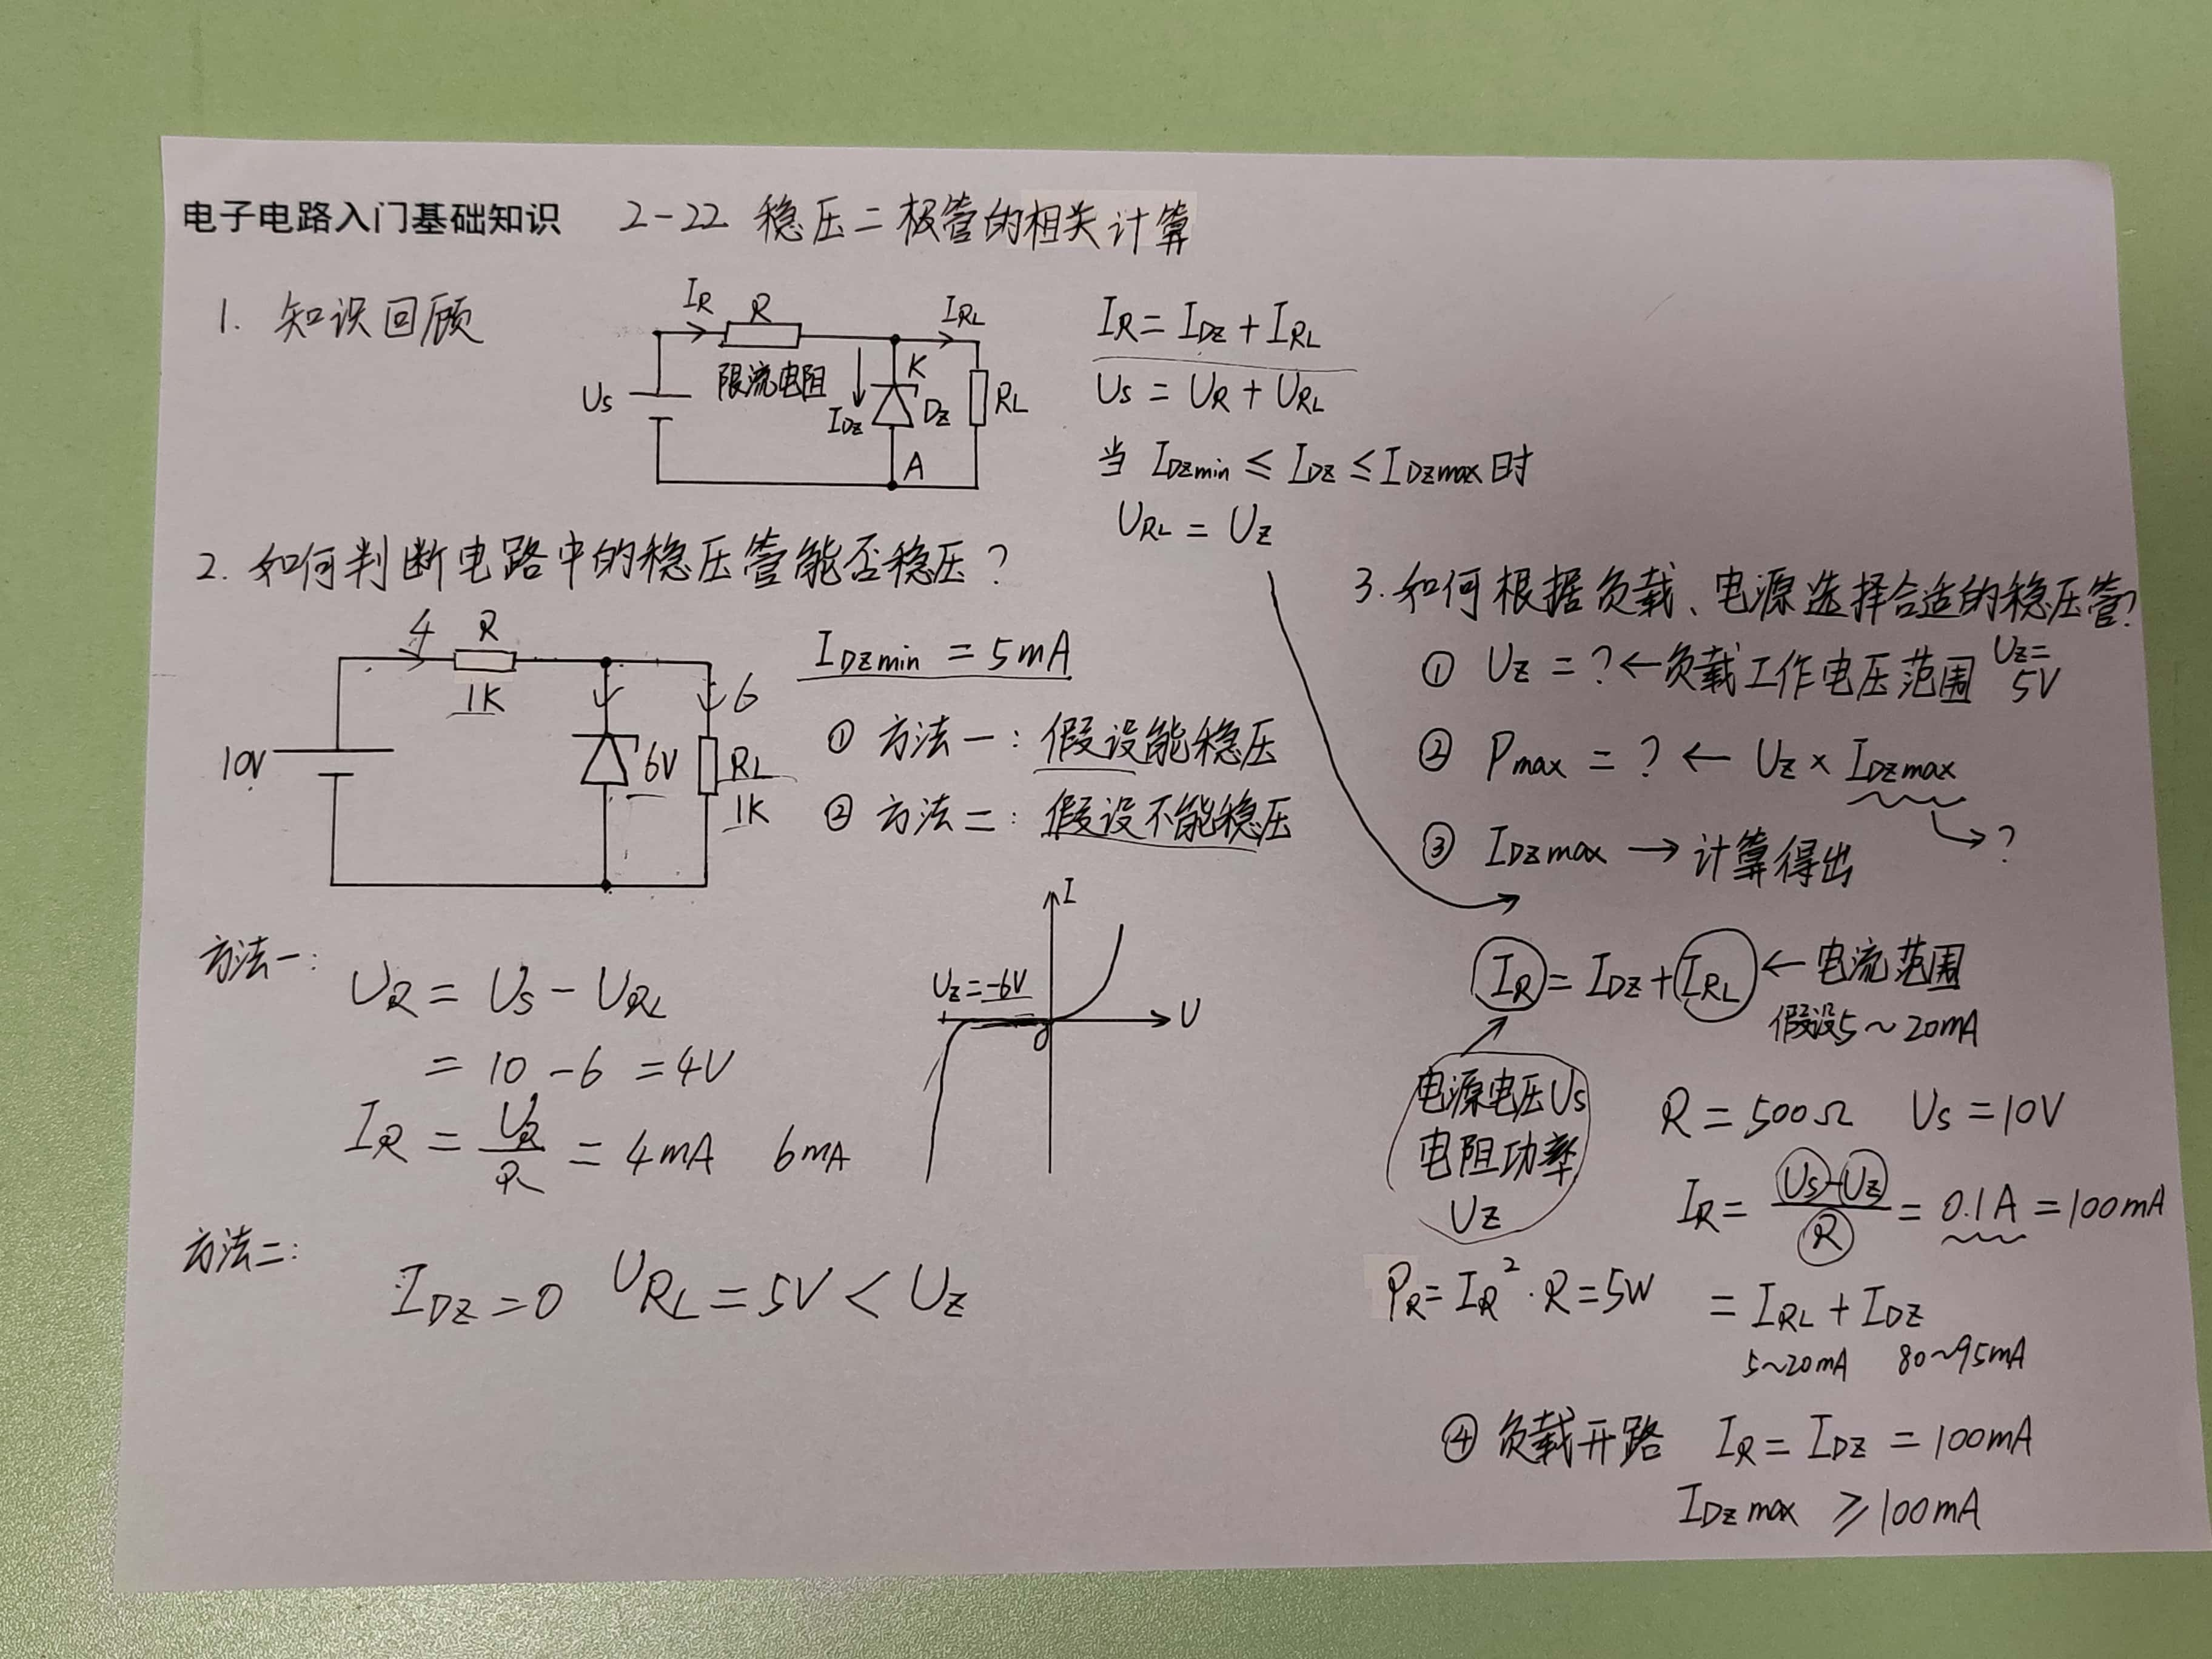 电子电路入门基础知识 2-22 稳压二极管的相关计算
1. 知识回顾
IR R IRL
限流电阻
Us IDZ K DZ RL
A
IR = IDZ + IRL
Us = UR + URL
当 IDZmin ≤ IDZ ≤ IDZmax 时
URL = UZ
2. 如何判断电路中的稳压管能否稳压?
4 R
1K
6
10V 6V RL
1K
IDZmin = 5mA
① 方法一: 假设能稳压
② 方法二: 假设不能稳压
方法一:
UR = Us - URL
= 10 - 6 = 4V
IR = UR/R = 4mA 6mA
I
UZ=-6V
0 U
方法二:
IDZ = 0 URL = 5V < UZ
3. 如何根据负载、电源选择合适的稳压管?
① UZ = ? ← 负载工作电压范围 UZ= 5V
② Pmax = ? ← UZ × IDZmax
→ ?
③ IDZmax → 计算得出
IR = IDZ + IRL ← 电流范围
假设5~20mA
电源电压Us
电阻功率
UZ
R = 500Ω Us = 10V
IR = Us-UZ/R = 0.1A = 100mA
PR = IR² · R = 5W
= IRL + IDZ
5~20mA 80~95mA
④ 负载开路 IR = IDZ = 100mA
IDZmax ≥ 100mA